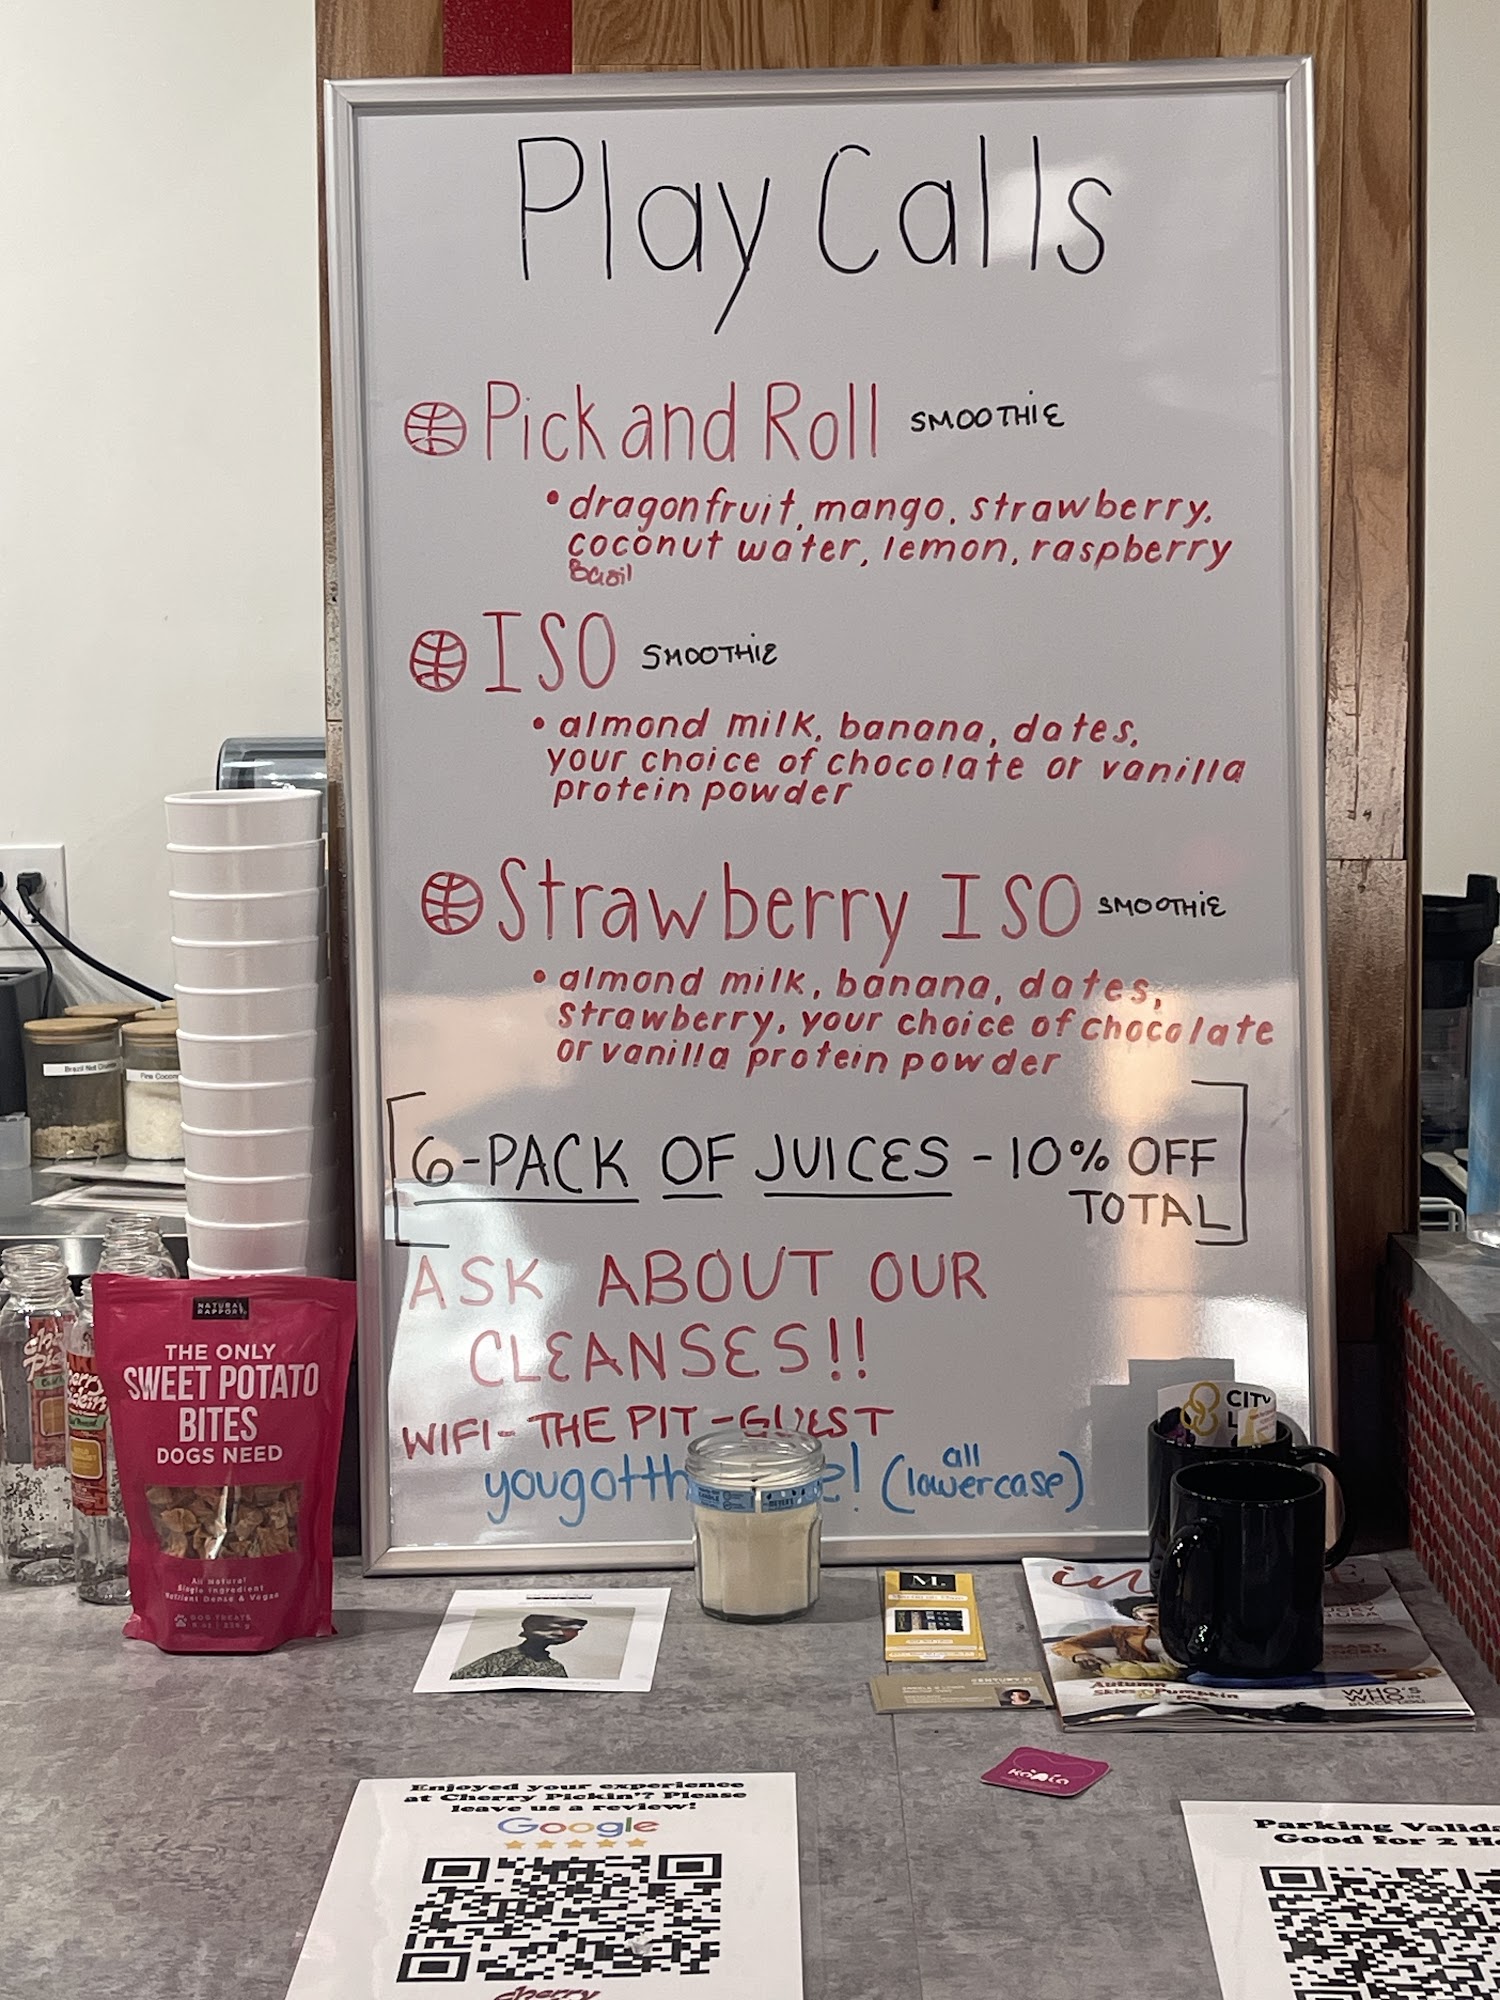 Play Calls
Pick and Roll SMOOTHIE
• dragonfruit, mango, strawberry,
coconut water, lemon, raspberry
Basil
ISO SMOOTHIE
• almond milk, banana, dates,
your choice of chocolate or vanilla
protein powder
Strawberry ISO SMOOTHIE
• almond milk, banana, dates,
strawberry, your choice of chocolate
or vanilla protein powder
6-PACK OF JUICES - 10% OFF
TOTAL
ASK ABOUT OUR
CLEANSES!!
WIFI- THE PIT -GUEST
all
(lowercase)
Brazil Nut
NATURAL
RAPPORT
THE ONLY
SWEET POTATO
BITES
DOGS NEED
All Natural
Single Ingredient
Nutrient Dense & Vegan
DOG TREATS
CITY
M.
CENTURY 21
Autumn
Skies & Pumpkin
Pies
WHO'S
WHO IN
Enjoyed your experience
at Cherry Pickin'? Please
leave us a review!
Google
Cherry
Parking
Good for 2